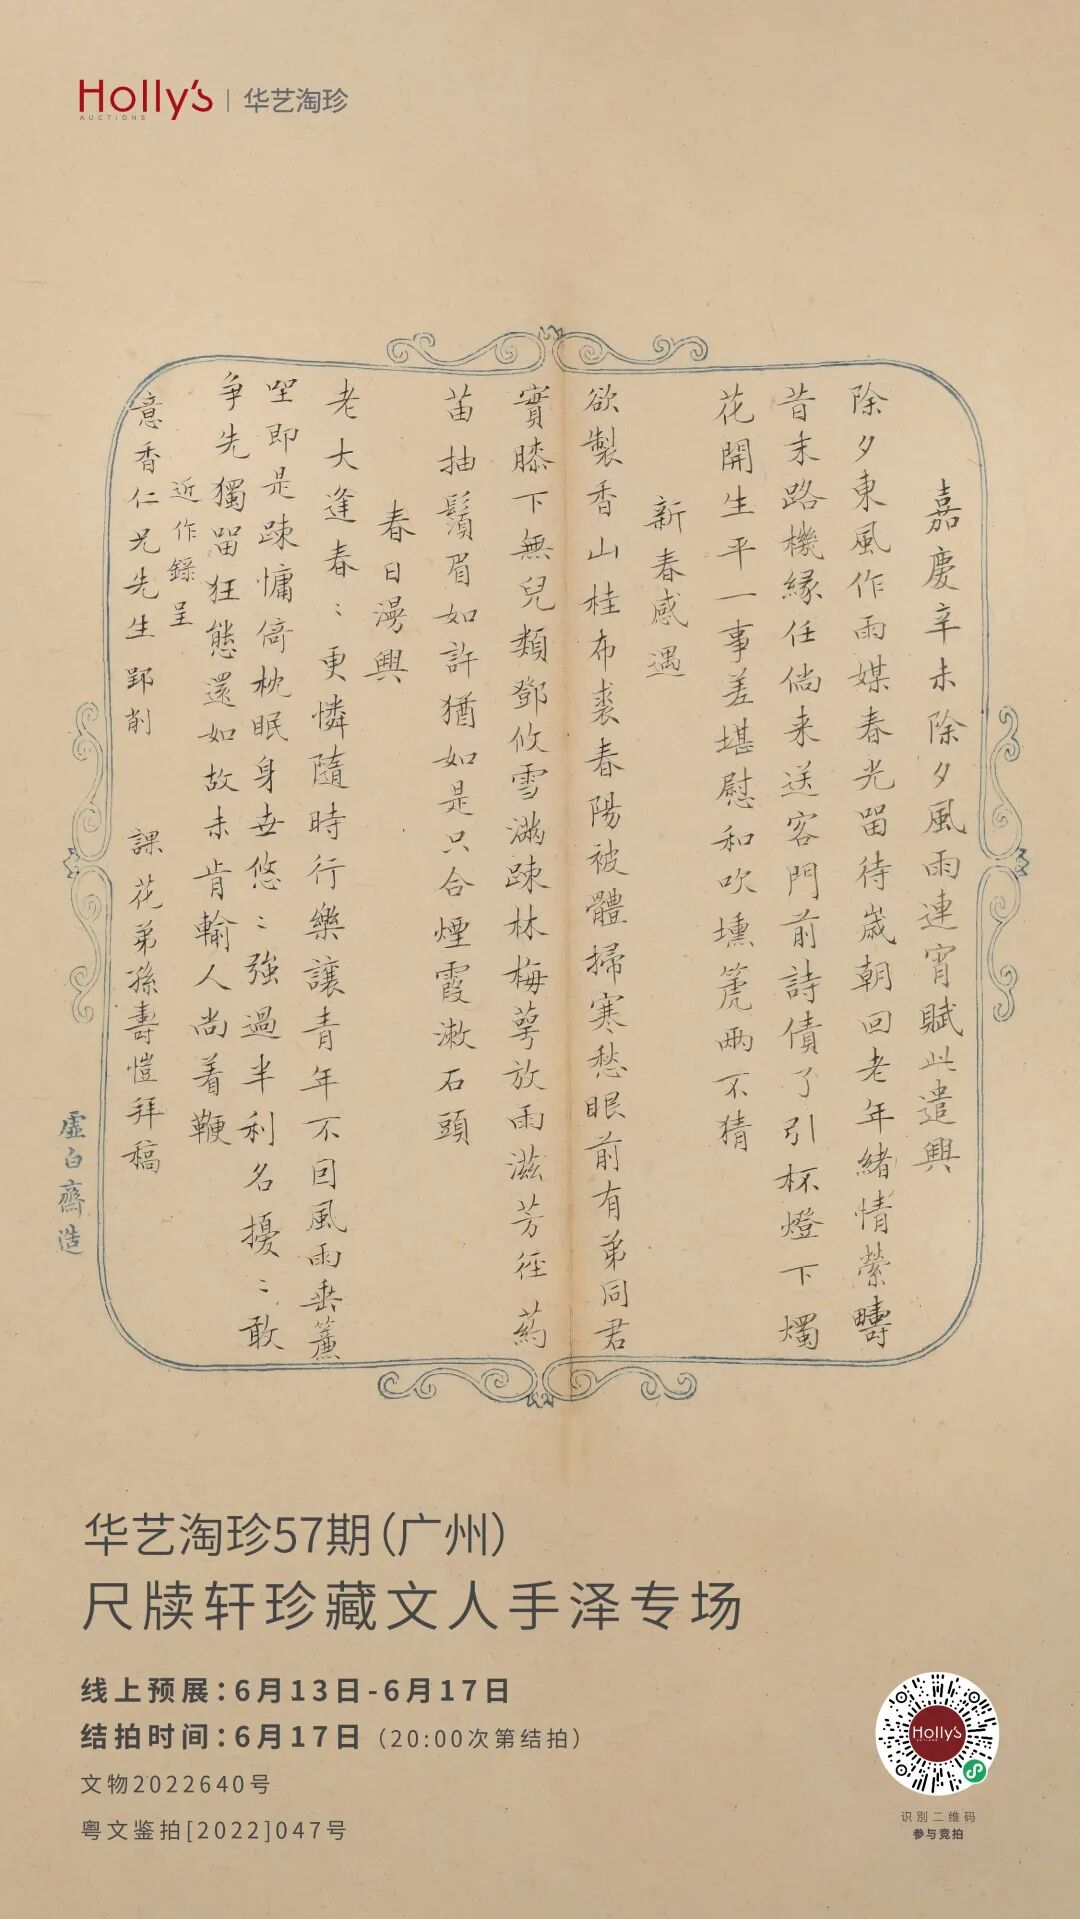 Holly's
AUCTIONS
华艺淘珍
嘉慶辛未除夕風雨連宵賦此遣興
除夕東風作雨媒春光畱待歲朝回老年緒情縈疇
昔末路機緣任倘来送客門前詩債了引杯燈下燭
花開生平一事差堪慰和吹壎篪兩不猜
新春感遇
欲製香山桂布裘春陽被體掃寒愁眼前有弟同君
實膝下無兒類鄧攸雪滿踈林梅萼放雨滋芳徑葯
苗抽鬚眉如許猶如是只合煙霞漱石頭
春日漫興
老大逢春:更憐隨時行樂讓青年不因風雨垂簾
坐即是踈慵倚枕眠身世悠:強過半利名擾:敢
爭先獨畱狂態還如故未肯輸人尚着鞭
近作錄呈
意香仁兄先生郢削
課花弟孫壽愷拜稿
虛白齋造
华艺淘珍57期(广州)
尺牍轩珍藏文人手泽专场
线上预展:6月13日-6月17日
结拍时间:6月17日(20:00次第结拍)
文物2022640号
粤文鉴拍[2022]047号
Holly's
识别二维码
参与竞拍